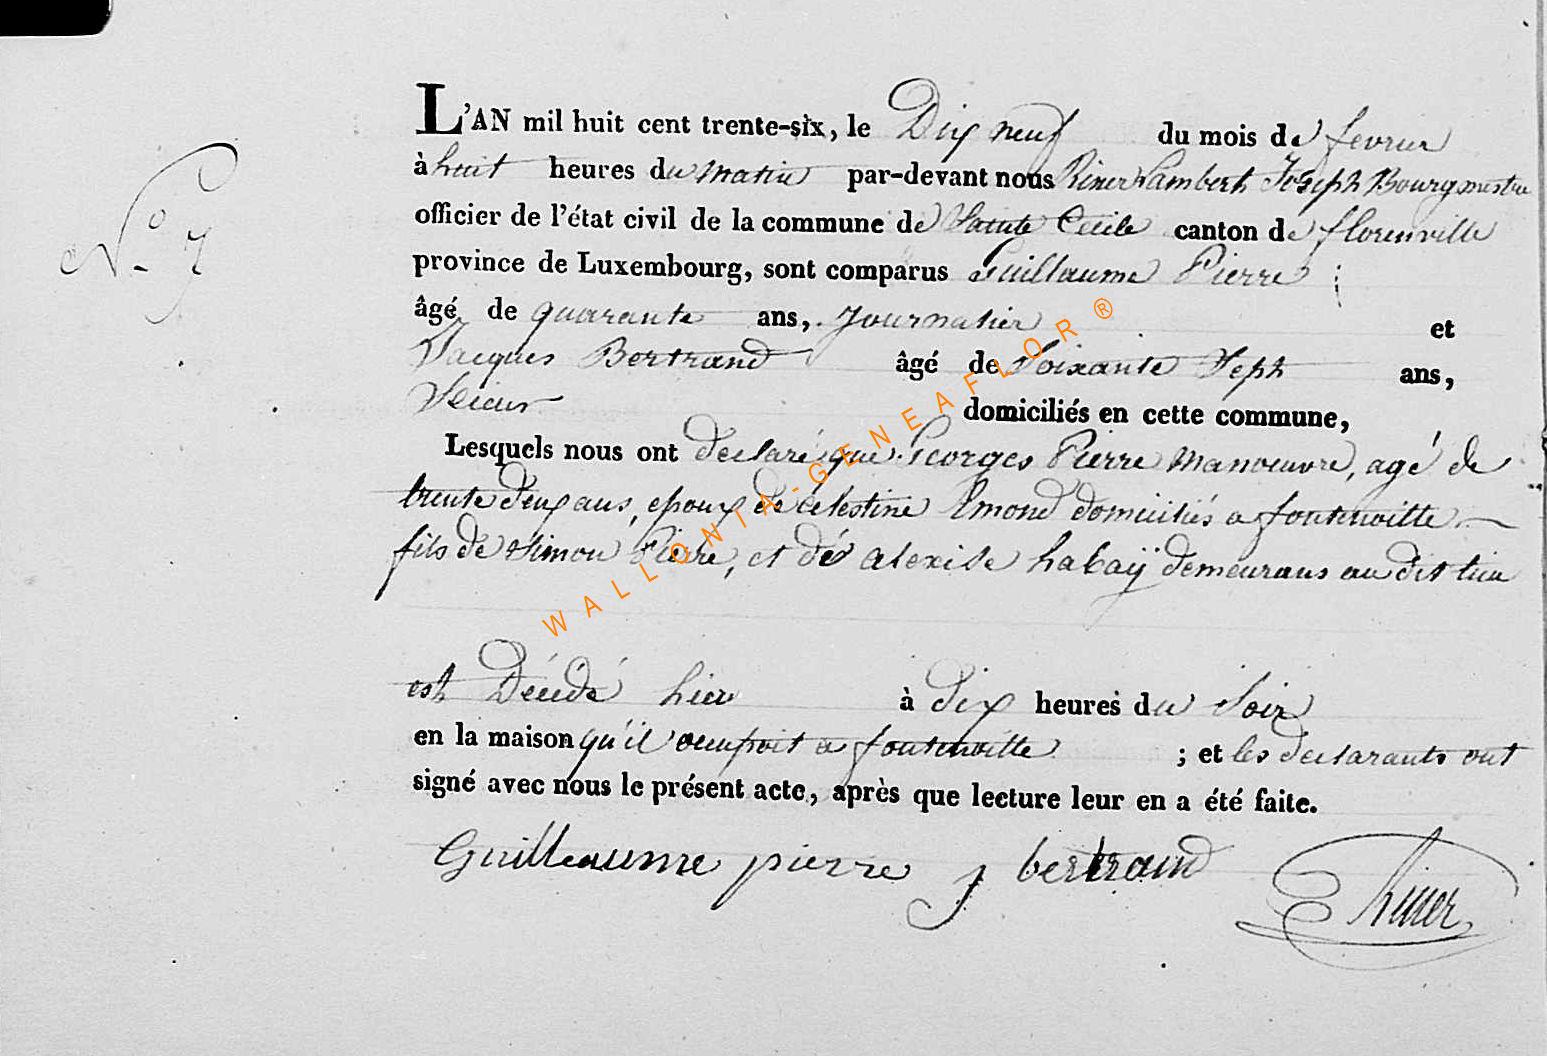 L'AN mil huit cent trente-six, le Dix neuf du mois de fevrier
N.º 7
à huit heures du matin par-devant nous Riner Lambert Joseph Bourgmestre
officier de l'état civil de la commune de Sainte Cecile canton de florenville
province de Luxembourg, sont comparus Guillaume Pierre
âgé de quarante ans, Journalier et
Jacques Bertrand âgé de Soixante Sept ans,
Scieur domiciliés en cette commune,
Lesquels nous ont declaré que Georges Pierre manoeuvre, agé de
trente deux ans, epoux de celestine Emond domiciliés a fontenoille
fils de Simon Pierre, et de alexise habaÿ demeurans au dit lieu
est Décédé hier à Dix heures du Soir
en la maison qu'il occupoit a fontenoille ; et les declarants ont
signé avec nous le présent acte, après que lecture leur en a été faite.
Guilleaume pierre j bertrand Riner
WALLONIA-GENEAFLOR ®